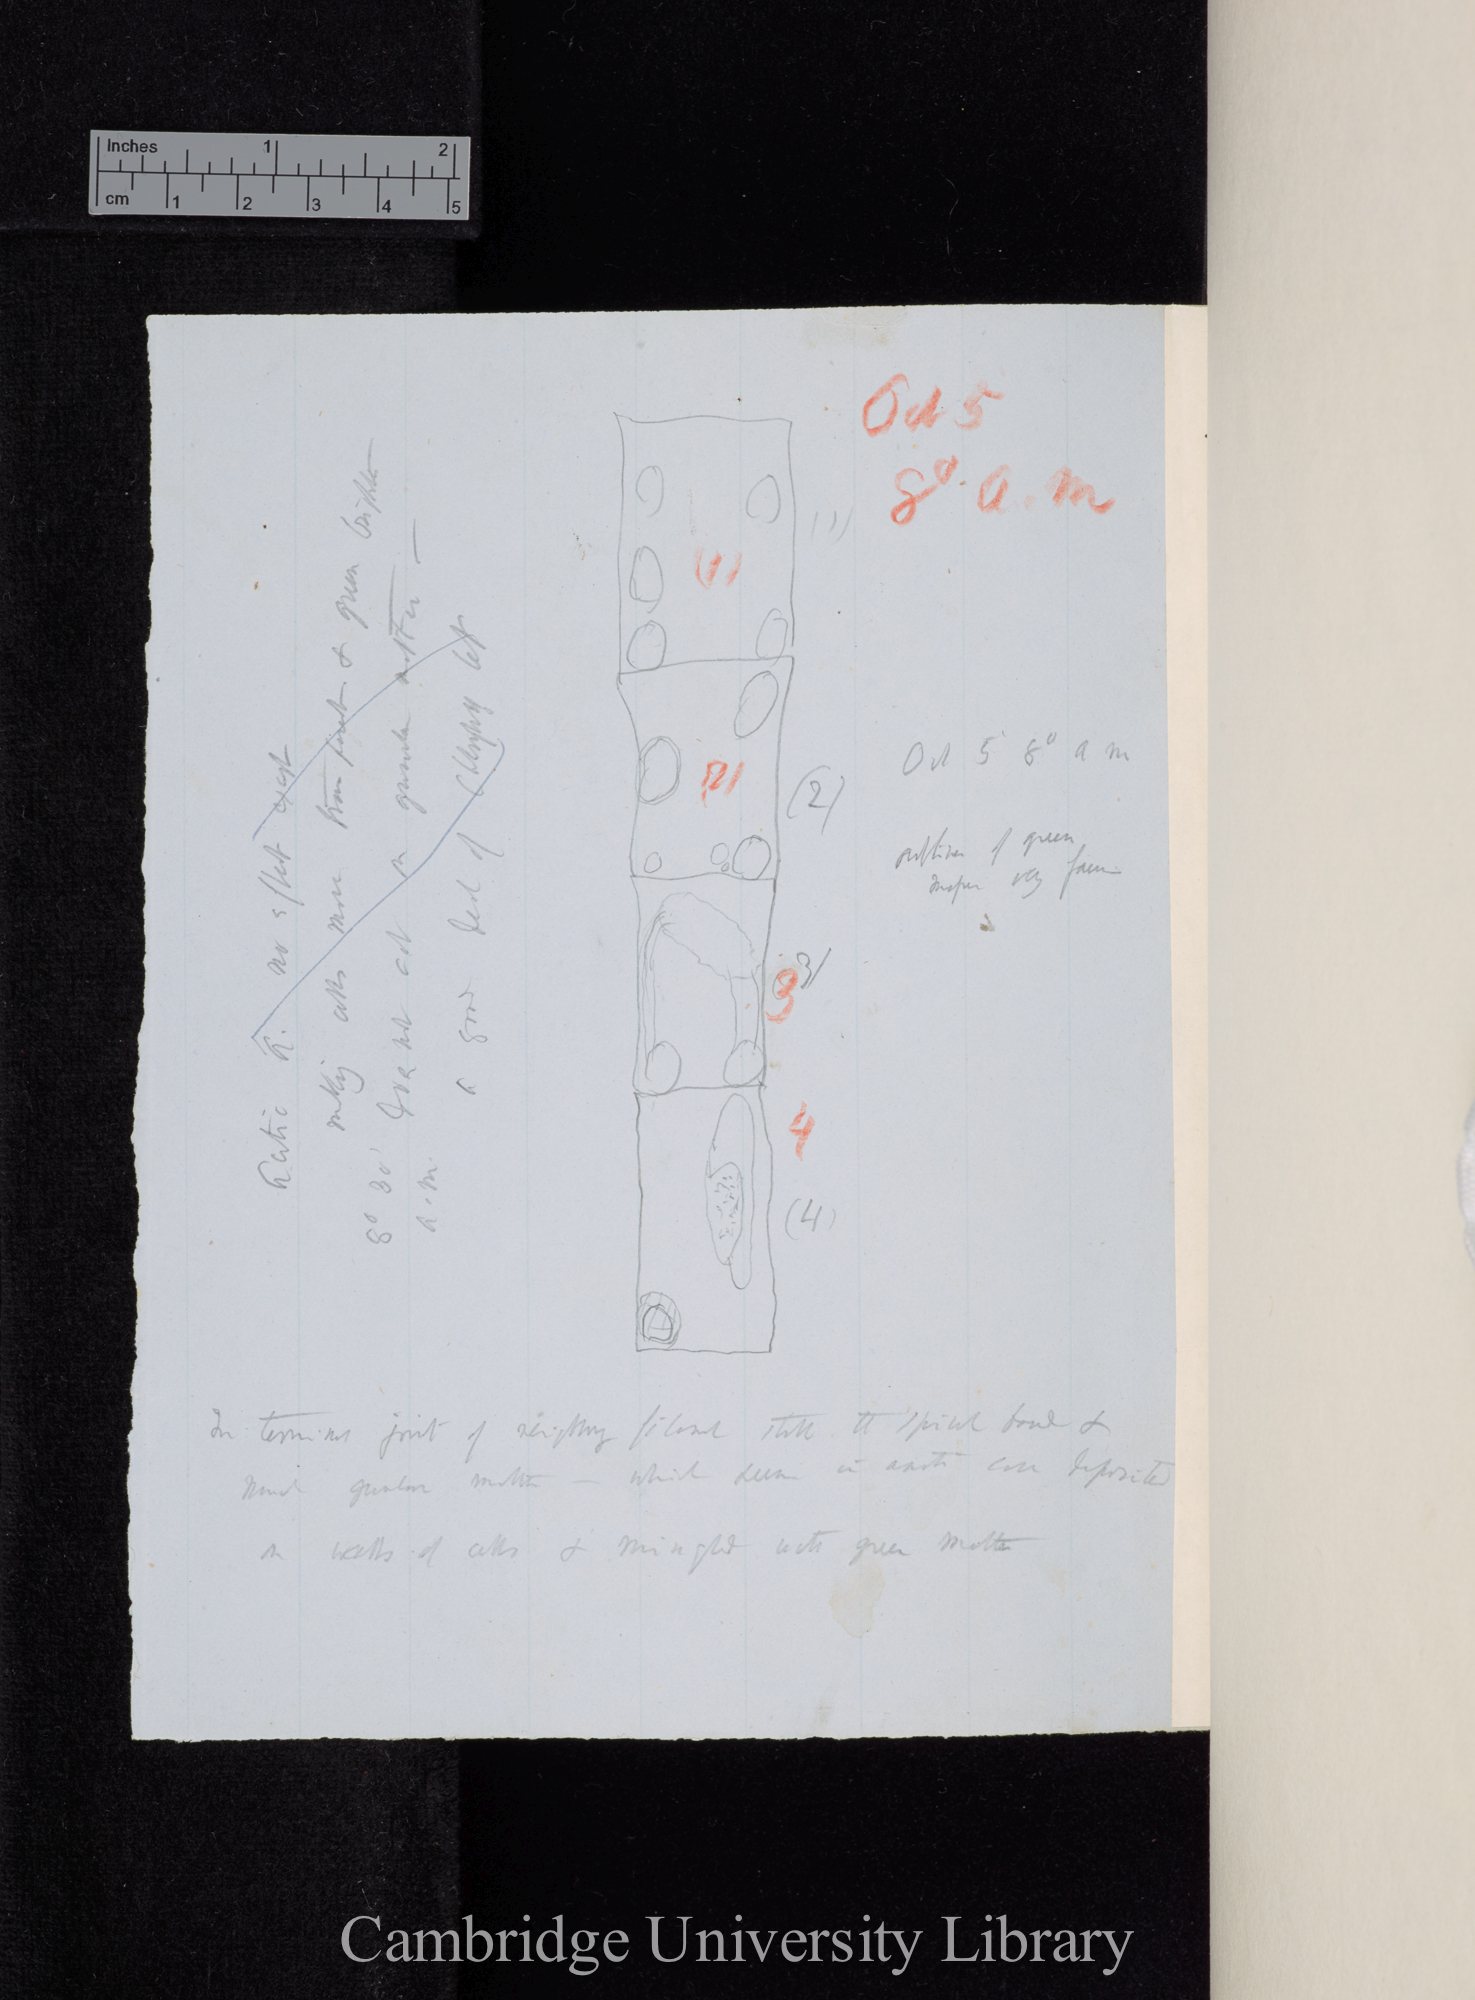 Inches 1 2
cm 1 2 3 4 5
Oct 5
8° a.m
(1)
(1)
(2)
(2)
3
3)
4
(4)
Oct 5 8° a m
outlines of green
very
no effect except
making cells more & green brighter
8° 30' does not act on granular matter —
a.m. a good deal of left
In terminal joint of filament still the spiral band &
much granular matter — which seems in case deposited
on walls of cells & mingled with green matter
Cambridge University Library